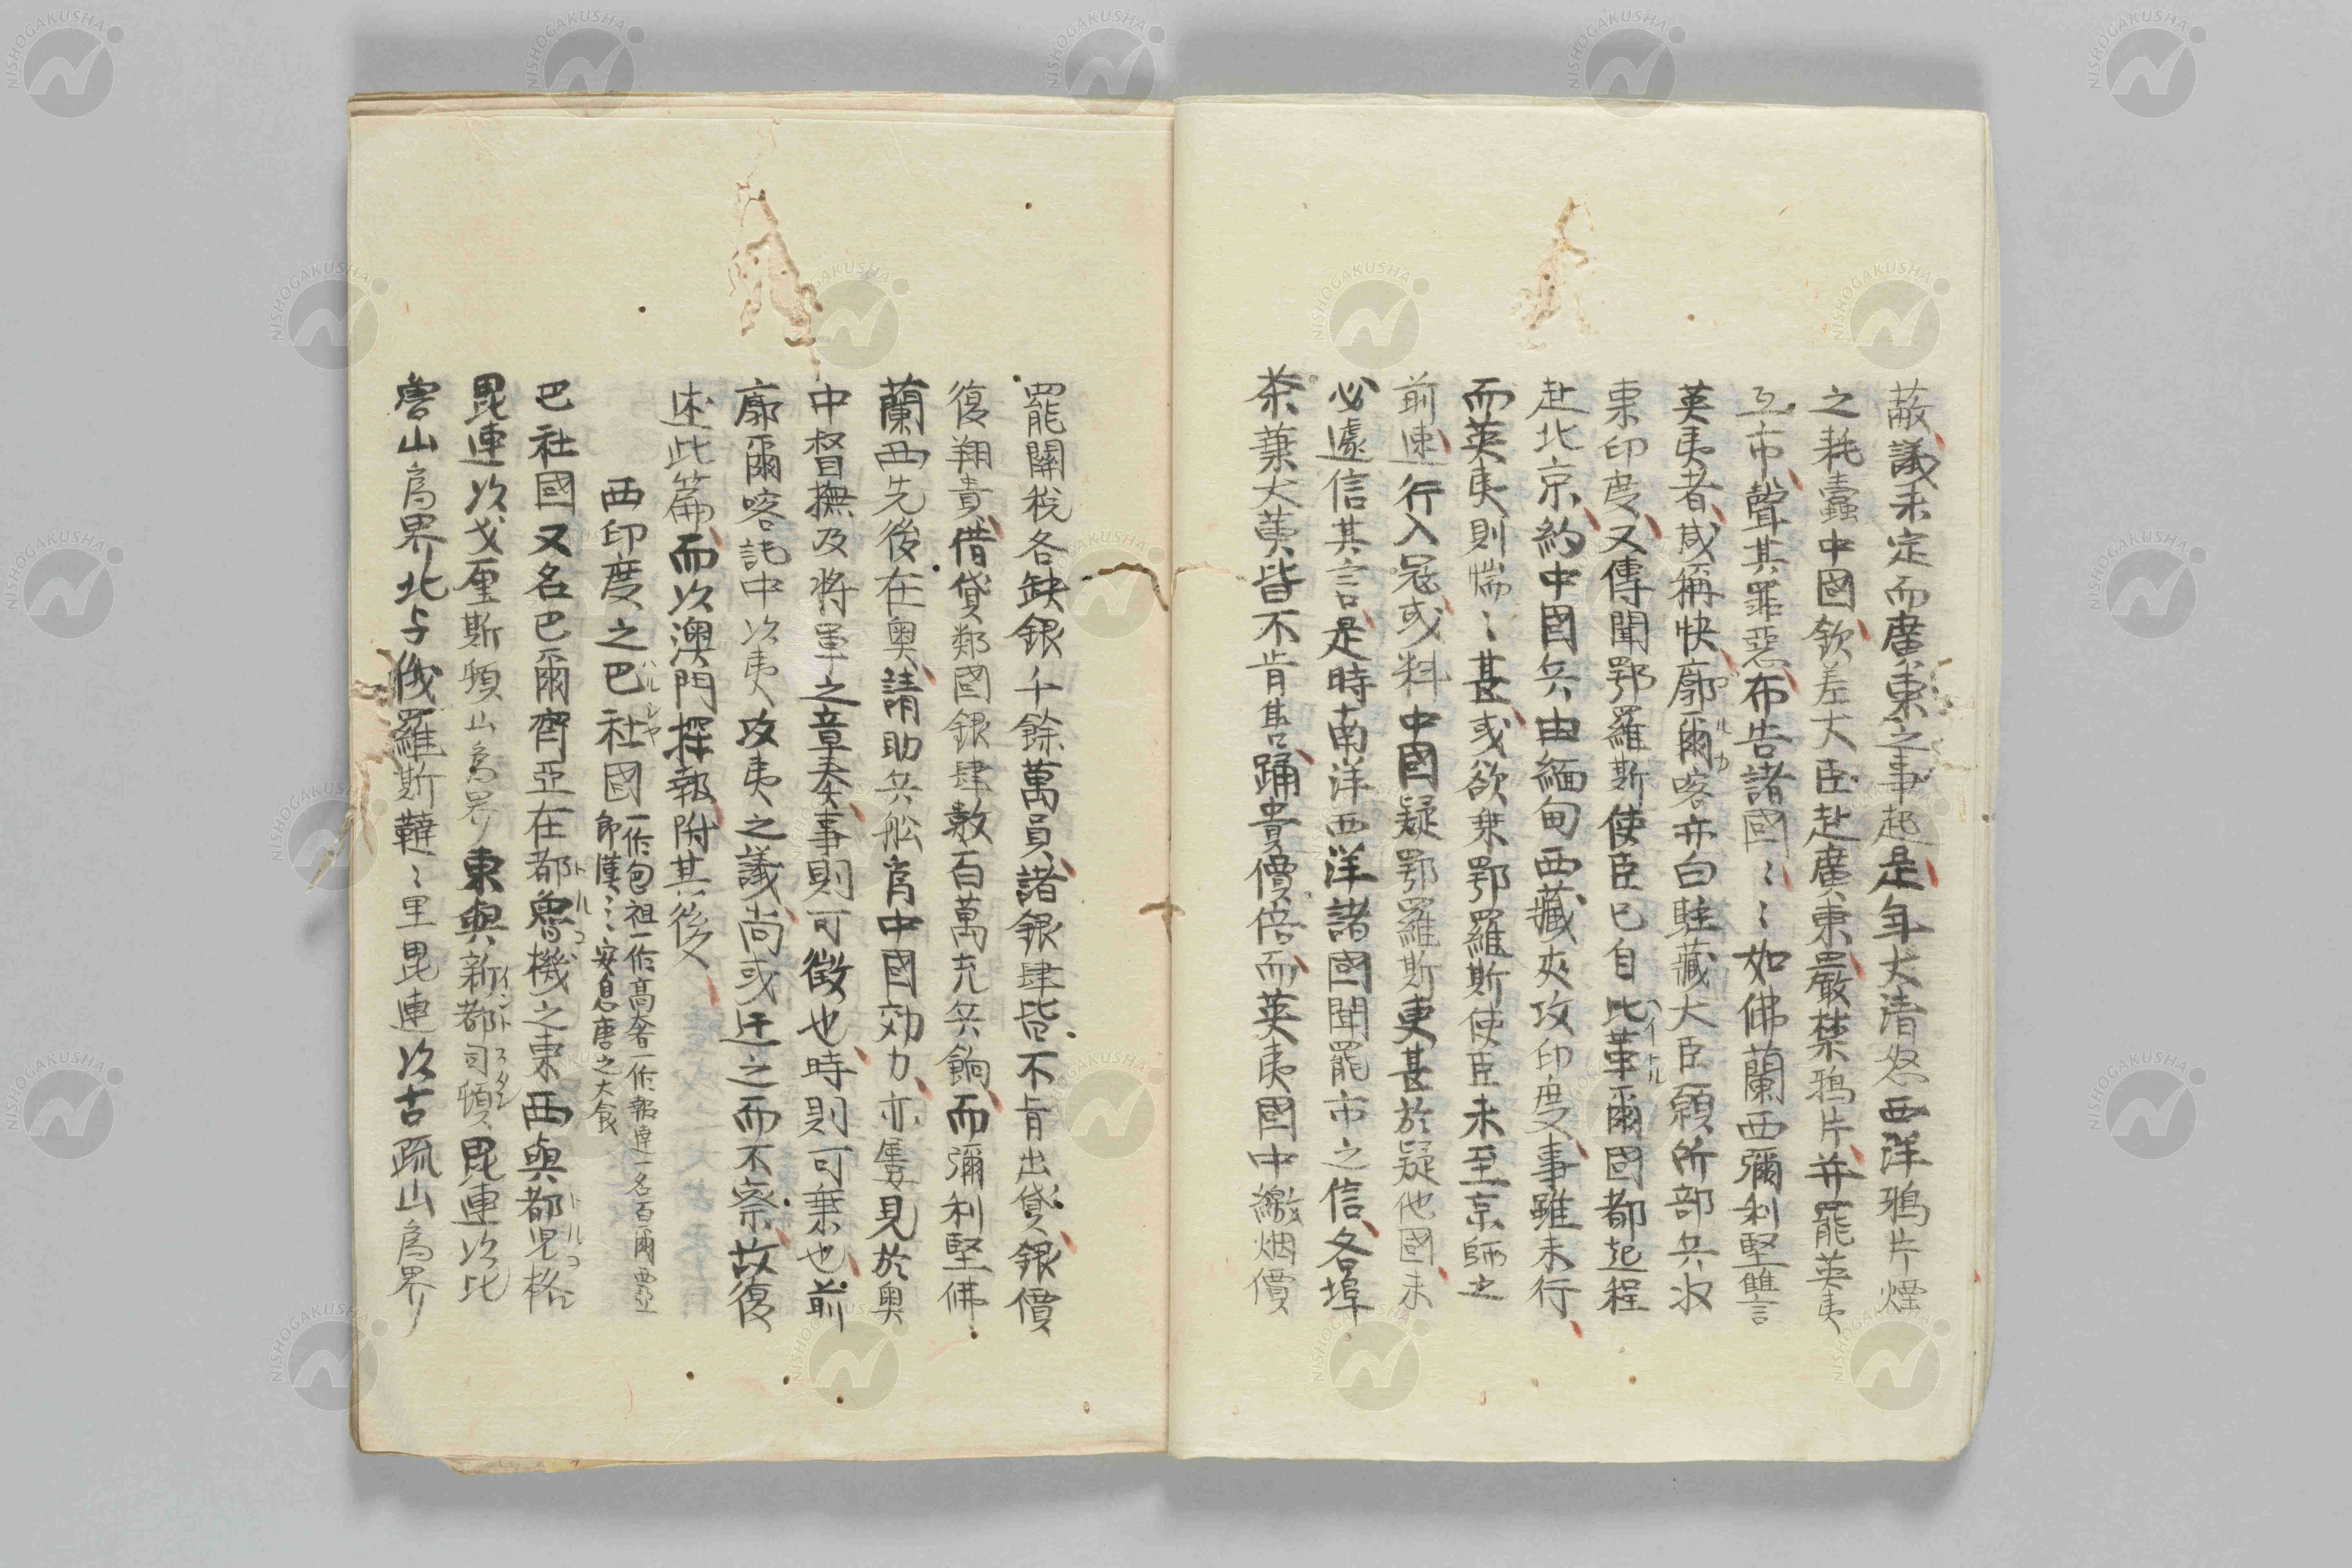 蔽議未定而廣東之事起是年大清怒西洋鴉片煙
之耗蠹中國欽差大臣赴廣東嚴禁鴉片并罷英夷
互市聲其罪惡布告諸國〻〻如佛蘭西彌利堅讐
英夷者咸稱快廓爾喀亦白駐藏大臣願所部兵收
東印度又傳聞鄂羅斯使臣已自比革爾國都起程
赴北京約中國兵由緬甸西藏夾攻印度事雖未行
而英夷則惴〻甚或欲乘鄂羅斯使臣未至京師之
前速行入寇或料中國疑鄂羅斯更甚於疑他國未
必遽信其言是時南洋西洋諸國聞罷市之信各埠
茶葉大黃皆不肯售踊貴價倍而英夷國中繳烟價
罷關稅各缺銀千餘萬員諸銀肆皆不肯出貸銀價
復翔貴借貸鄰國銀肆數百萬充兵餉而彌利堅佛
蘭西先後在奧請助兵舩肯中國効力亦屢見於奧
中督撫及將軍之章奏事則可徵也時則可乘也前
廓爾喀訛中次夷攻夷之議尚或迂之而不察故復
述此篇而次澳門探報附其後
西印度之巴社國 一作包社一作高奢一作報達一名百爾西亞
即漢〻〻安息唐之大食
巴社國又名巴爾齊亞在都魯機之東西與都児格
毘連次戈厘斯頓山為界東與新都司頓毘連次比
魯山為界北与俄羅斯韃〻里毘連次古疏山為界
ハルシヤ
コルカ
ヘイトル
トルコ
トルコ
イントスタン
NISHOGAKUSHA